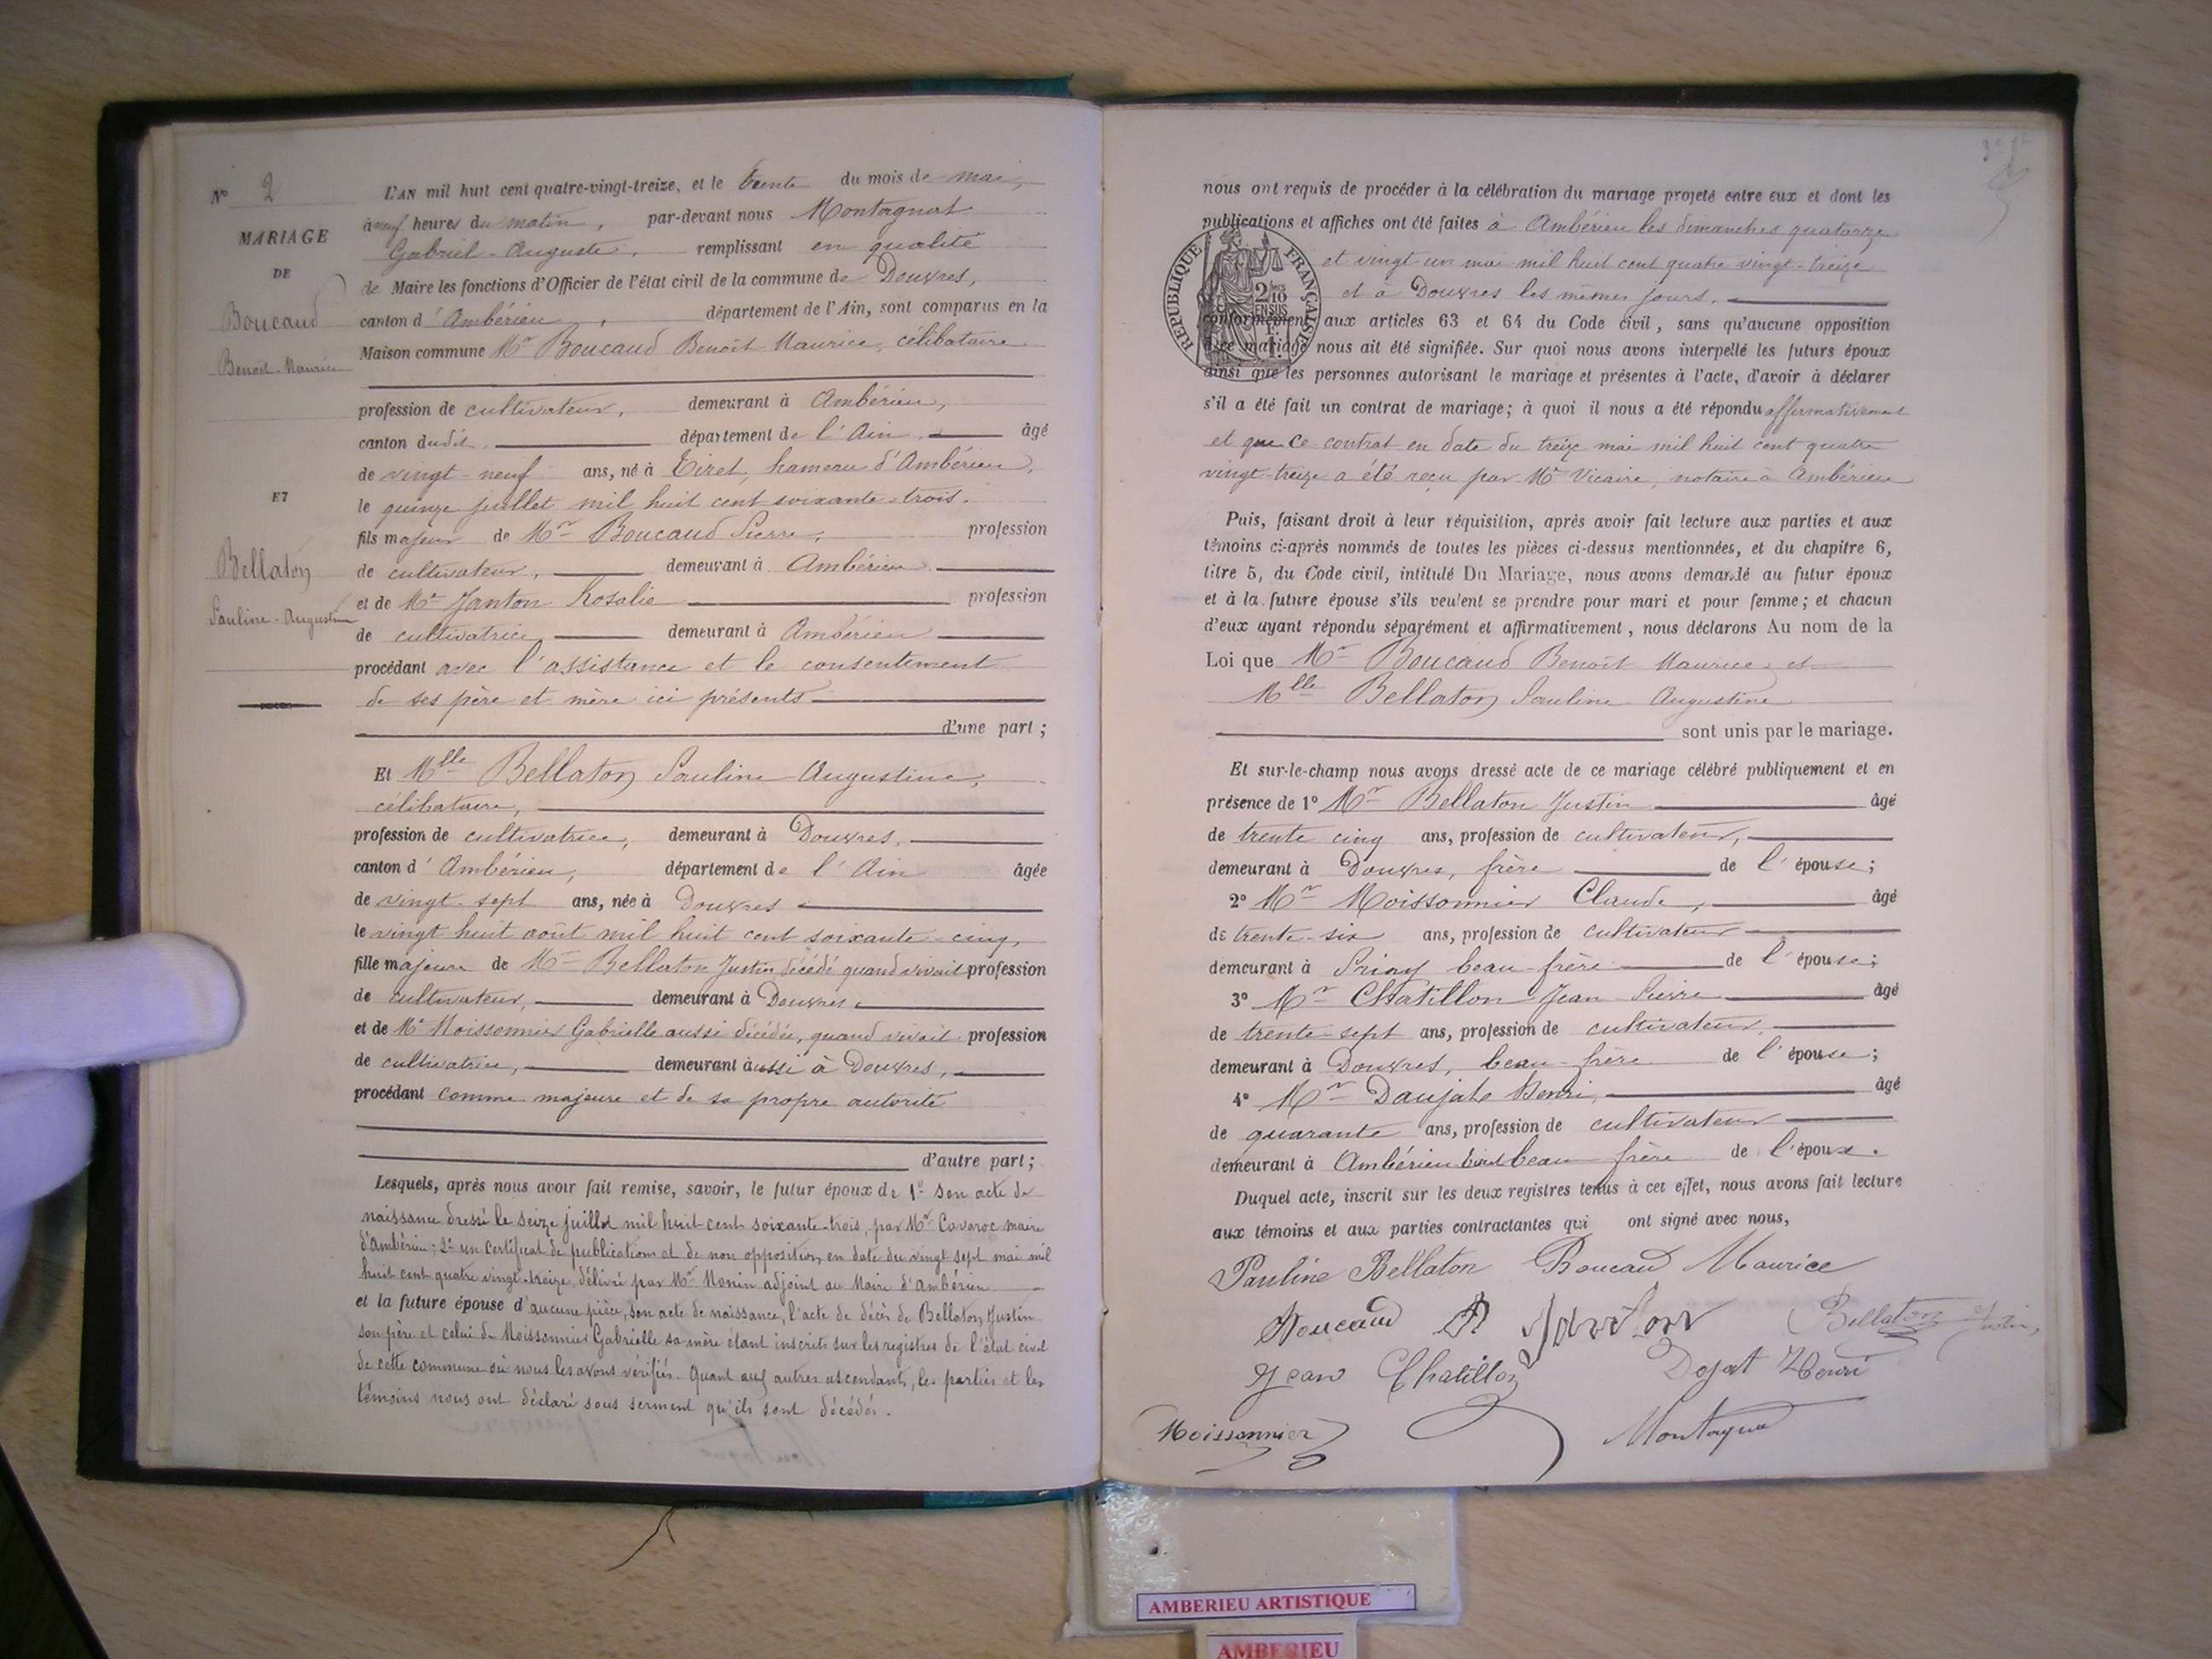 N° 2
MARIAGE
DE
Boucaud
Benoit-Maurice
ET
Bellaton
Pauline-Augustine
L'AN mil huit cent quatre-vingt-treize, et le trente du mois de mai,
à neuf heures du matin, par-devant nous Montagnat
Gabriel-Auguste, remplissant en qualité
de Maire les fonctions d'Officier de l'état civil de la commune de Douvres,
canton d'Ambérieu, département de l'Ain, sont comparus en la
Maison commune Mr Boucaud Benoît Maurice, célibataire
profession de cultivateur, demeurant à Ambérieu,
canton dudit département de l'Ain, âgé
de vingt-neuf ans, né à Tiret, hameau d'Ambérieu,
le quinze juillet mil huit cent soixante-trois.
fils majeur de Mr Boucaud Pierre, profession
de cultivateur, demeurant à Ambérieu
et de Me Janton Rosalie profession
de cultivatrice demeurant à Ambérieu
procédant avec l'assistance et le consentement
de ses père et mère ici présents
d'une part;
Et Mlle Bellaton Pauline Augustine,
célibataire,
profession de cultivatrice, demeurant à Douvres,
canton d'Ambérieu, département de l'Ain âgée
de vingt-sept ans, née à Douvres
le vingt huit août mil huit cent soixante-cinq,
fille majeure de Mr Bellaton Justin décédé quand vivait profession
de cultivateur, demeurant à Douvres
et de Me Moissonnier Gabrielle aussi décédée, quand vivait profession
de cultivatrice, demeurant aussi à Douvres,
procédant comme majeure et de sa propre autorité
d'autre part;
Lesquels, après nous avoir fait remise, savoir, le futur époux de 1° Son acte de
naissance dressé le seize juillet mil huit cent soixante-trois, par Mr Cavaroc maire
d'Ambérieu; 2° un certificat de publications et de non opposition, en date du vingt sept mai mil
huit cent quatre vingt-treize, délivré par Mr Monin adjoint au Maire d'Ambérieu
et la future épouse d'aucune pièce, son acte de naissance, l'acte de décès de Bellaton Justin
son père et celui de Moissonnier Gabrielle sa mère étant inscrits sur les registres de l'état civil
de cette commune où nous les avons vérifiés. Quant aux autres ascendants, les parties et les
témoins nous ont déclaré sous serment qu'ils sont décédés.
nous ont requis de procéder à la célébration du mariage projeté entre eux et dont les
publications et affiches ont été faites à Ambérieu les dimanches quatorze
et vingt-un mai mil huit cent quatre vingt-treize
et à Douvres les mêmes jours,
REPUBLIQUE FRANÇAISE
2/10 EN SUS
conformément aux articles 63 et 64 du Code civil, sans qu'aucune opposition
à ce mariage nous ait été signifiée. Sur quoi nous avons interpellé les futurs époux
ainsi que les personnes autorisant le mariage et présentes à l'acte, d'avoir à déclarer
s'il a été fait un contrat de mariage; à quoi il nous a été répondu affirmativement
et que ce contrat en date du treize mai mil huit cent quatre
vingt-treize a été reçu par Me Vicaire, notaire à Ambérieu
Puis, faisant droit à leur réquisition, après avoir fait lecture aux parties et aux
témoins ci-après nommés de toutes les pièces ci-dessus mentionnées, et du chapitre 6,
titre 5, du Code civil, intitulé Du Mariage, nous avons demandé au futur époux
et à la future épouse s'ils veulent se prendre pour mari et pour femme; et chacun
d'eux ayant répondu séparément et affirmativement, nous déclarons Au nom de la
Loi que Mr Boucaud Benoît Maurice et
Mlle Bellaton Pauline Augustine
sont unis par le mariage.
Et sur-le-champ nous avons dressé acte de ce mariage célébré publiquement et en
présence de 1° Mr Bellaton Justin âgé
de trente cinq ans, profession de cultivateur,
demeurant à Douvres, frère de l'épouse;
2° Mr Moissonnier Claude, âgé
de trente-six ans, profession de cultivateur
demeurant à Priay beau-frère de l'épouse;
3° Mr Chatillon Jean Pierre âgé
de trente-sept ans, profession de cultivateur,
demeurant à Douvres, beau-frère de l'épouse;
4° Mr Daujat Henri, âgé
de quarante ans, profession de cultivateur
demeurant à Ambérieu Tiret beau frère de l'époux.
Duquel acte, inscrit sur les deux registres tenus à cet effet, nous avons fait lecture
aux témoins et aux parties contractantes qui ont signé avec nous,
Pauline Bellaton Boucaud Maurice
Boucaud R Janton Bellaton Justin
Jean Chatillon Dojat Henri
Moissonnier Montagnat
AMBERIEU ARTISTIQUE
AMBERIEU